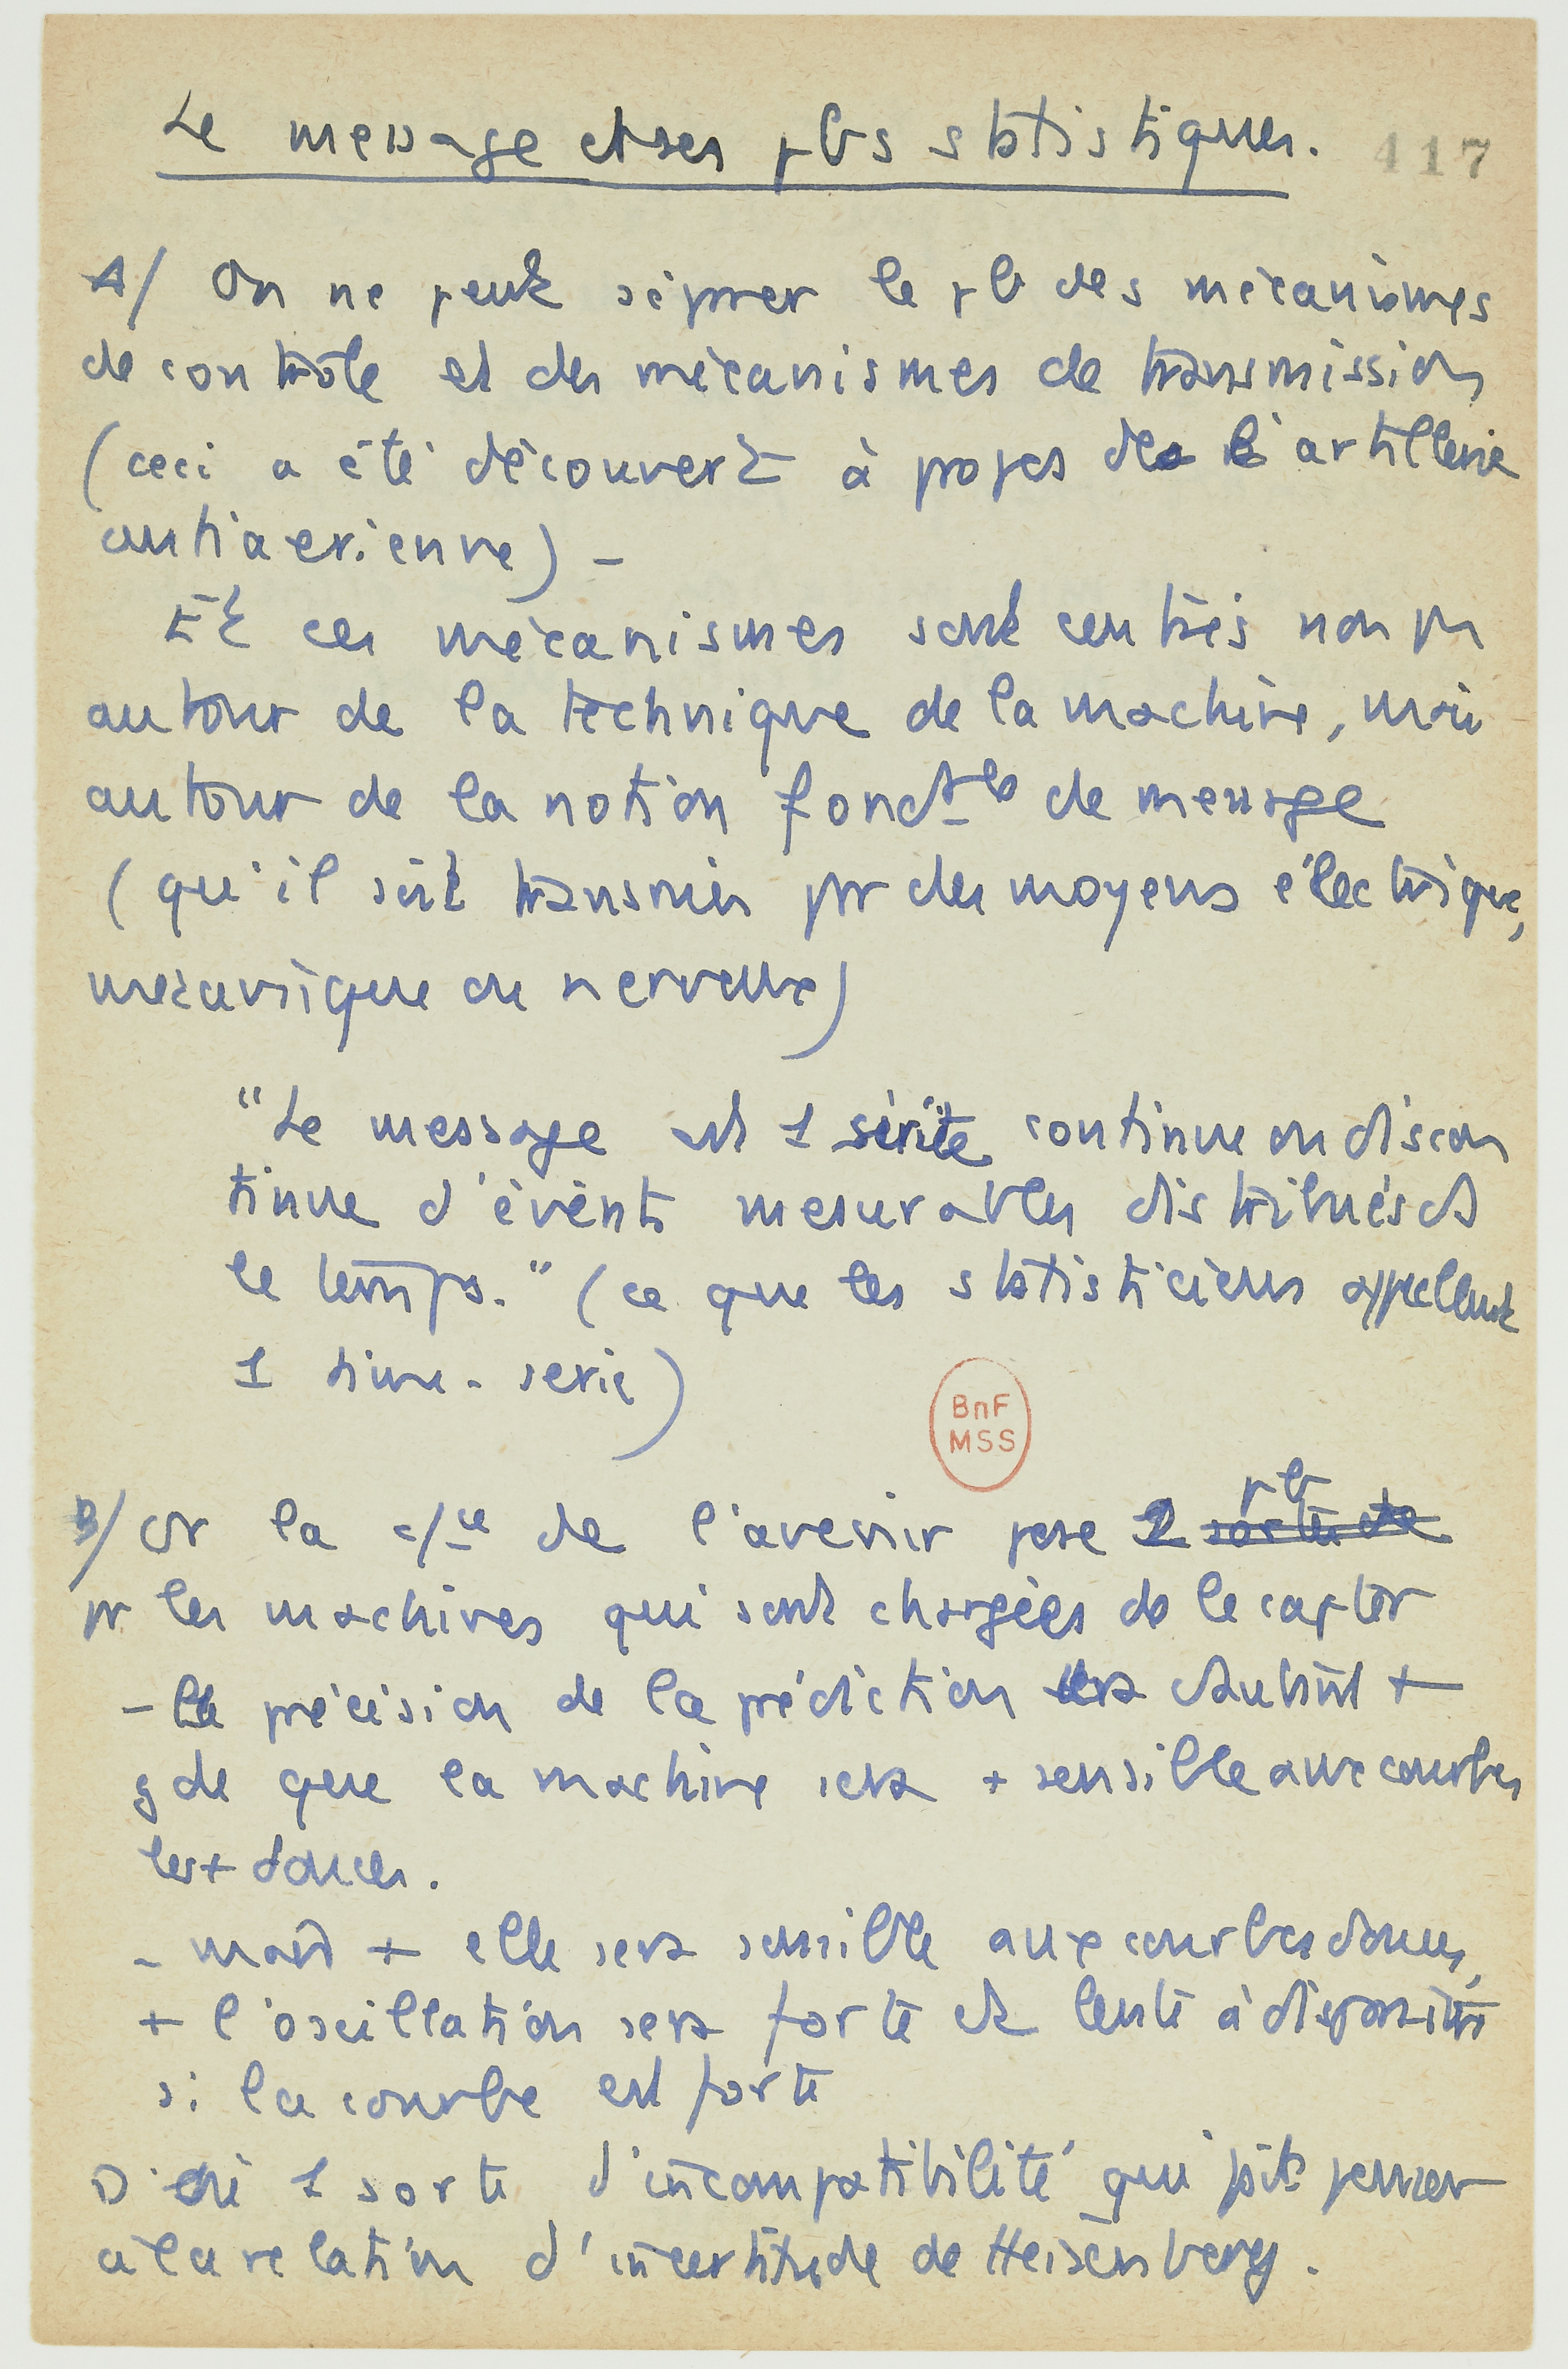 Le message et ses pbs statistiques.
417
A/ On ne peut séparer le pb des mécanismes
de contrôle et des mécanismes de transmission
(ceci a été découvert à propos de l'artillerie
antiaerienne) -
Et ces mécanismes sont centrés non pas
autour de la technique de la machine, mais
autour de la notion fondtle de message
(qu'il soit transmis par des moyens électrique,
mécanique ou nerveux)
"Le message est 1 série continue ou discon
tinue d'évènts mesurables distribués ds
le temps." (ce que les statisticiens appellent
1 time-serie)
BnF
MSS
B/ Or la c/ce de l'avenir pose 2 pb
pr les machines qui sont chargées de le capter
- La précision de la prédiction sera d'autant +
gde que la machine sera + sensible aux courbes
les + douces.
- mais + elle sera sensible aux courbes douces,
+ l'oscillation sera forte et lente à disparaitre
si la courbe est forte
D'où 1 sorte d'incompatibilité qui fait penser
à la relation d'incertitude de Heisenberg.